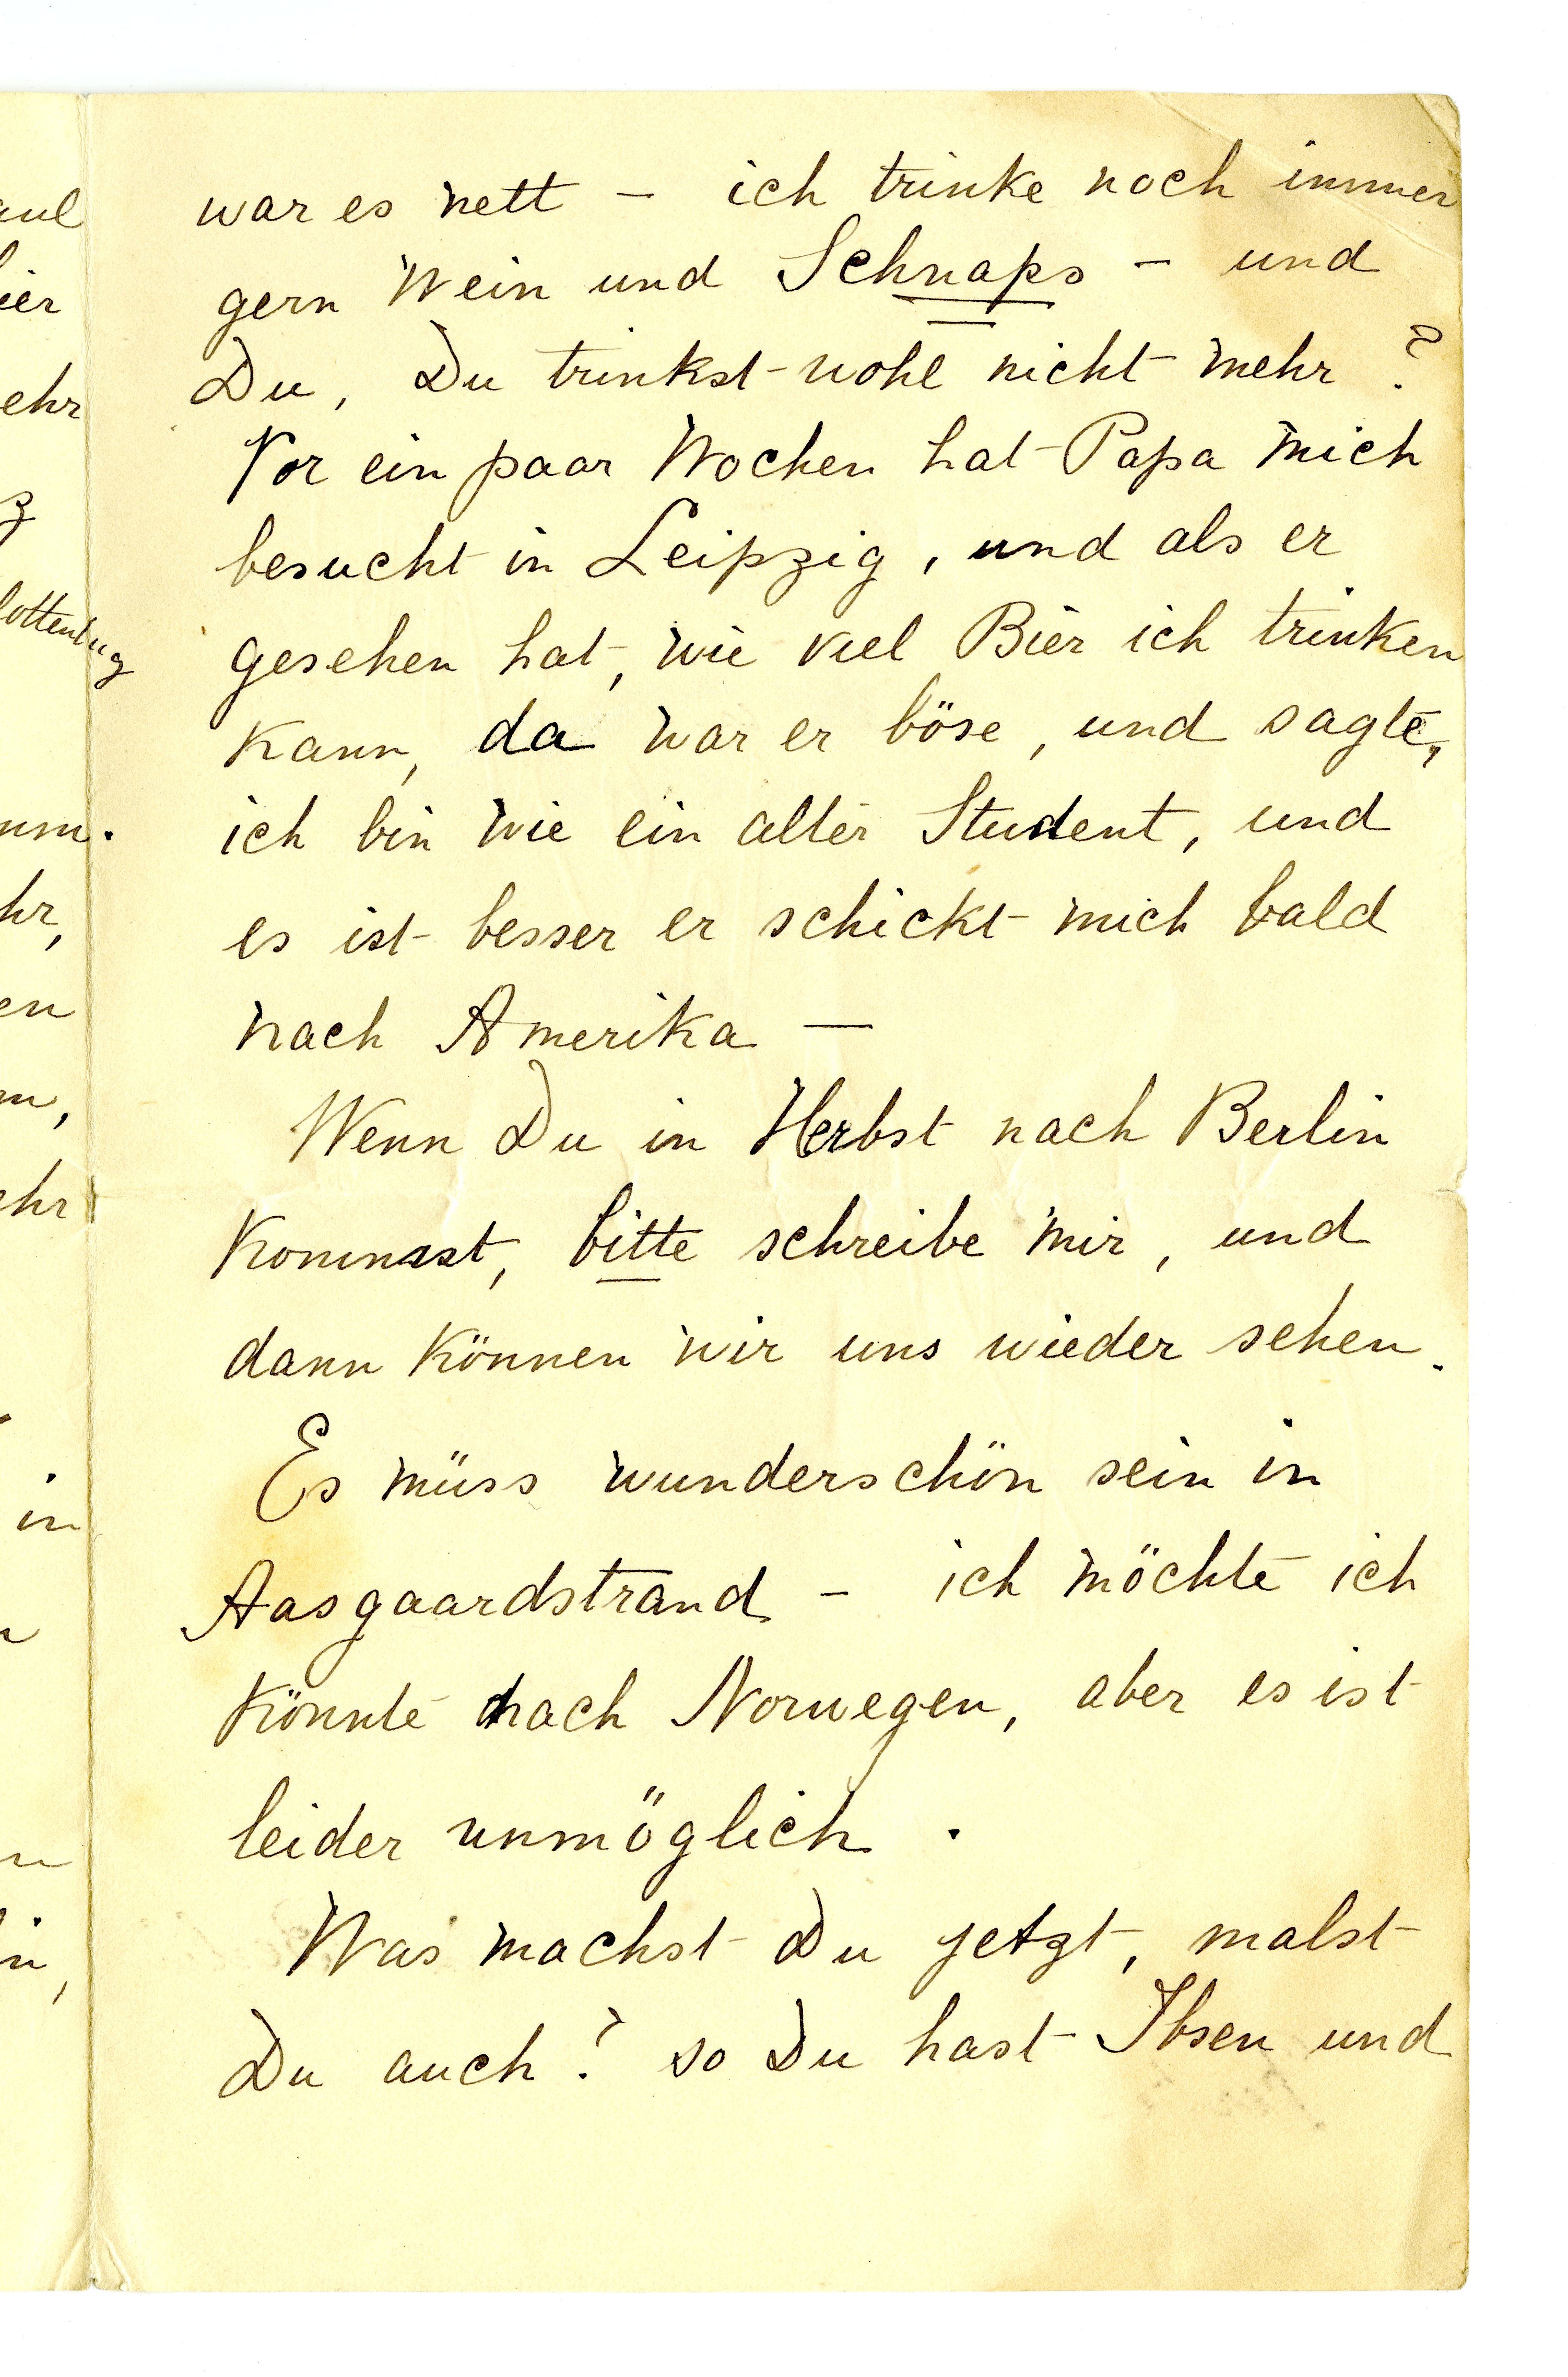 war es nett – ich trinke noch immer
gern Wein und Schnaps – und
Du, Du trinkst wohl nicht mehr?
Vor ein paar Wochen hat Papa mich
besucht in Leipzig, und als er
gesehen hat, wie viel Bier ich trinken
kann, da war er böse, und sagte,
ich bin wie ein alter Student, und
es ist besser er schickt mich bald
nach Amerika —
Wenn Du in Herbst nach Berlin
kommst, bitte schreibe mir, und
dann können wir uns wieder sehen.
Es müss wunderschön sein in
Aasgaardstrand – ich möchte ich
könnte nach Norwegen, aber es ist
leider unmöglich.
Was machst Du jetzt, malst
Du auch? so Du hast Ibsen und